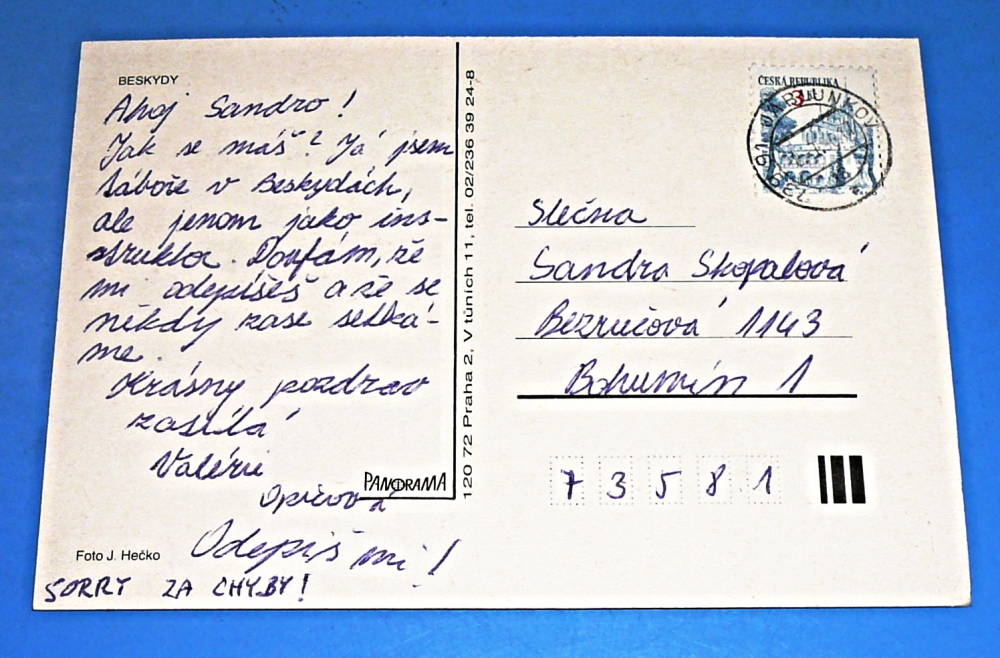 BESKYDY
Ahoj Sandro!
Jak se máš? Já jsem
táboře v Beskydách,
ale jenom jako ins-
struktor. Doufám, že
mi odepíšeš a že se
někdy zase setká-
me.
Krásný pozdrav
zasílá
Valérie
PANORAMA
Odepiš mi!
Foto J. Hečko
SORRY ZA CHYBY!
120 72 Praha 2, V tůních 11, tel. 02/236 39 24-8
ČESKA REPUBLIKA
3
JABLUNKOV
739 91
Slečna
Sandra Skopalová
Bezručová 1143
Bohumín 1
7 3 5 8 1